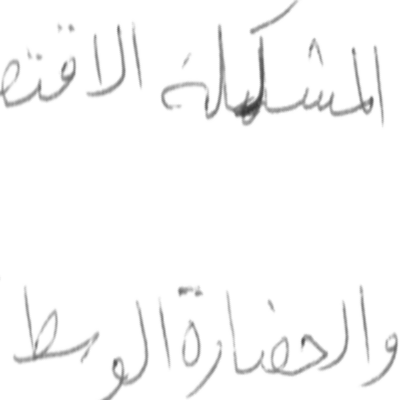 المشكلة الاقتص
والحضارة الوسط